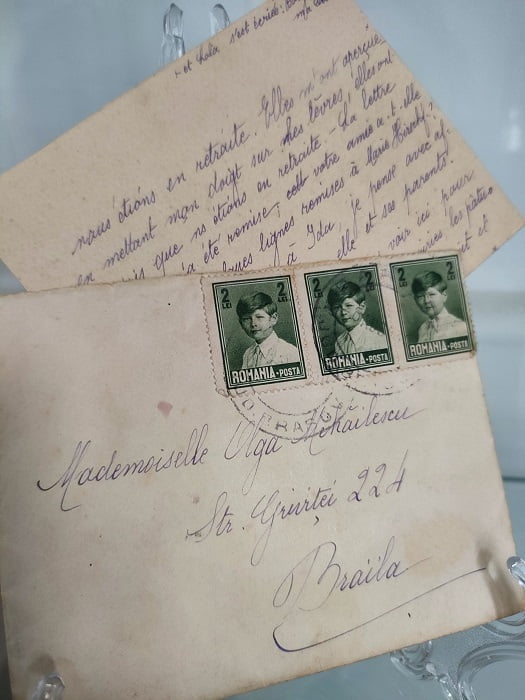 et
s'est
nous étions en retraite. Elles m'ont aperçue
en mettant mon doigt sur mes lèvres, elles ont
que ns étions en retraite - La lettre
a été remise; cett votre amie a-t-elle
lignes remises à Marie Hirschf.?
à Ida, je pense avec af-
elle et ses parents.
voir ici pour
les
et
2 LEI 2 LEI
ROMANIA-POSTA
2 LEI 2 LEI
ROMANIA-POSTA
2 2 LEI
ROMANIA-POSTA
Mademoiselle Olga Mihăilescu
Str. Griviței 224
Braila